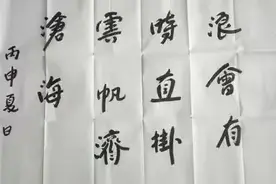 浪會有
時直掛
雲帆濟
滄海
丙申夏日